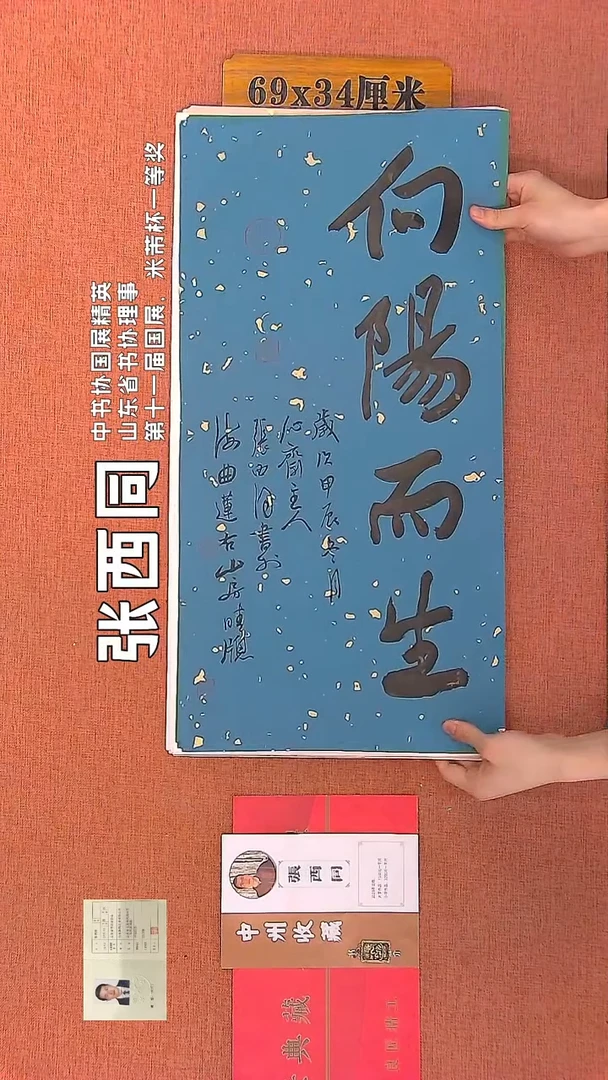 69x34厘米
向陽而生
歲次甲辰冬月
心齋主人
張西同書於
海曲蓮古山房晴窗
张西同
中书协国展精英
山东省书协理事
第十一届国展，米芾杯一等奖
張西同
中州收藏
典藏